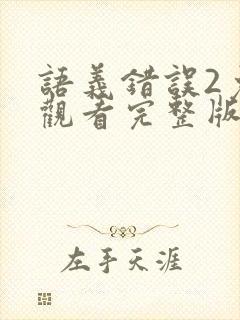 語義錯誤2
觀看完整版
左手天涯